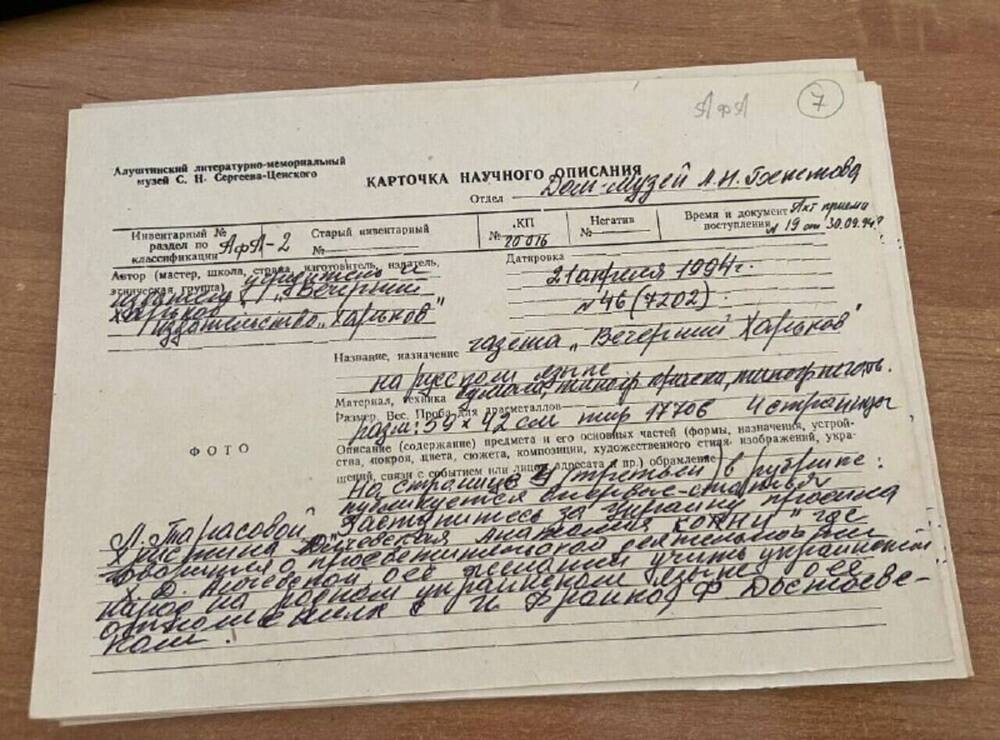 АфА
7
Алуштинский литературно-мемориальный
музей С. Н. Сергеева-Ценского
КАРТОЧКА НАУЧНОГО ОПИСАНИЯ
Отдел Дом-музей А.Н. Бекетова
Инвентарный №
раздел по
классификации АфА-2
Старый инвентарный
№
.КП
№ 20016
Негатив
№
Время и документ Акт приема
поступления № 19 от 30.09.94г
Автор (мастер, школа, страна, изготовитель, издатель,
этническая, группа) учредитель и
издатель "Вечерний
Харьков"
Издательство „Харьков"
Датировка
21 апреля 1994г.
№ 46 (7202)
Название, назначение газета „Вечерний Харьков"
на русском языке
Материал, техника бумага, типогр краска, типогр печать.
Размер. Вес. Проба для драгметаллов
разм: 59 х 42 см тир 17706 4 страницы
ФОТО
Описание (содержание) предмета и его основных частей (формы, назначения, устрой-
ства, покроя, цвета, сюжета, композиции, художественного стиля изображений, укра-
шений, связи с событием или лицом, адресата и пр.) обрамление
На странице 3 (третьей) в рубрике:
публикуется впервые - статья
Л. Тарасовой „Заступитесь за Украину просила
Христина Алчевская Анатолия КОНИ" где
говорится о просветительской деятельности
Х. Д. Алчевской, о её желании учить украинский
народ на родном украинском языке, о её
отношениях к И. Франко, Ф Достоевс-
кому.